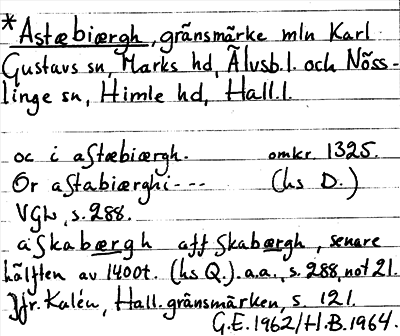 *Astæbiærgh, gränsmärke mln Karl
Gustavs sn, Marks hd, Älvsb.l. och Nöss-
linge sn, Himle hd, Hall.l.
oc i astæbiærgh. omkr. 1325.
Or astabiærghi--- (hs D.)
VGL, s. 288.
a skabærgh aff skabærgh, senare
hälften av 1400t. (hs Q.). a.a., s. 288, not 21.
Jfr. Kalén, Hall. gränsmärken, s. 121.
G.E. 1962/H.B. 1964.